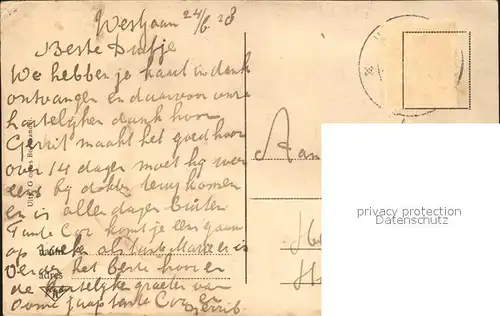 Westzaan 24/6 28
Beste Duifje
We hebben je kaart in dank
ontvangen en daarvoor onze
hartelijken dank hoor
Gerrit maakt het goed hoor
over 14 dagen moet hij weer
eens bij dokter terug komen
en is alle dagen buiten
Tante Cor komt je eens gaan
op zoeken als tante Marie er is
verder het beste hoor en
de hartelijke groeten van
oome Jaap tante Cor en
Gerrit
Aan
naam
adres
privacy protection
Datenschutz